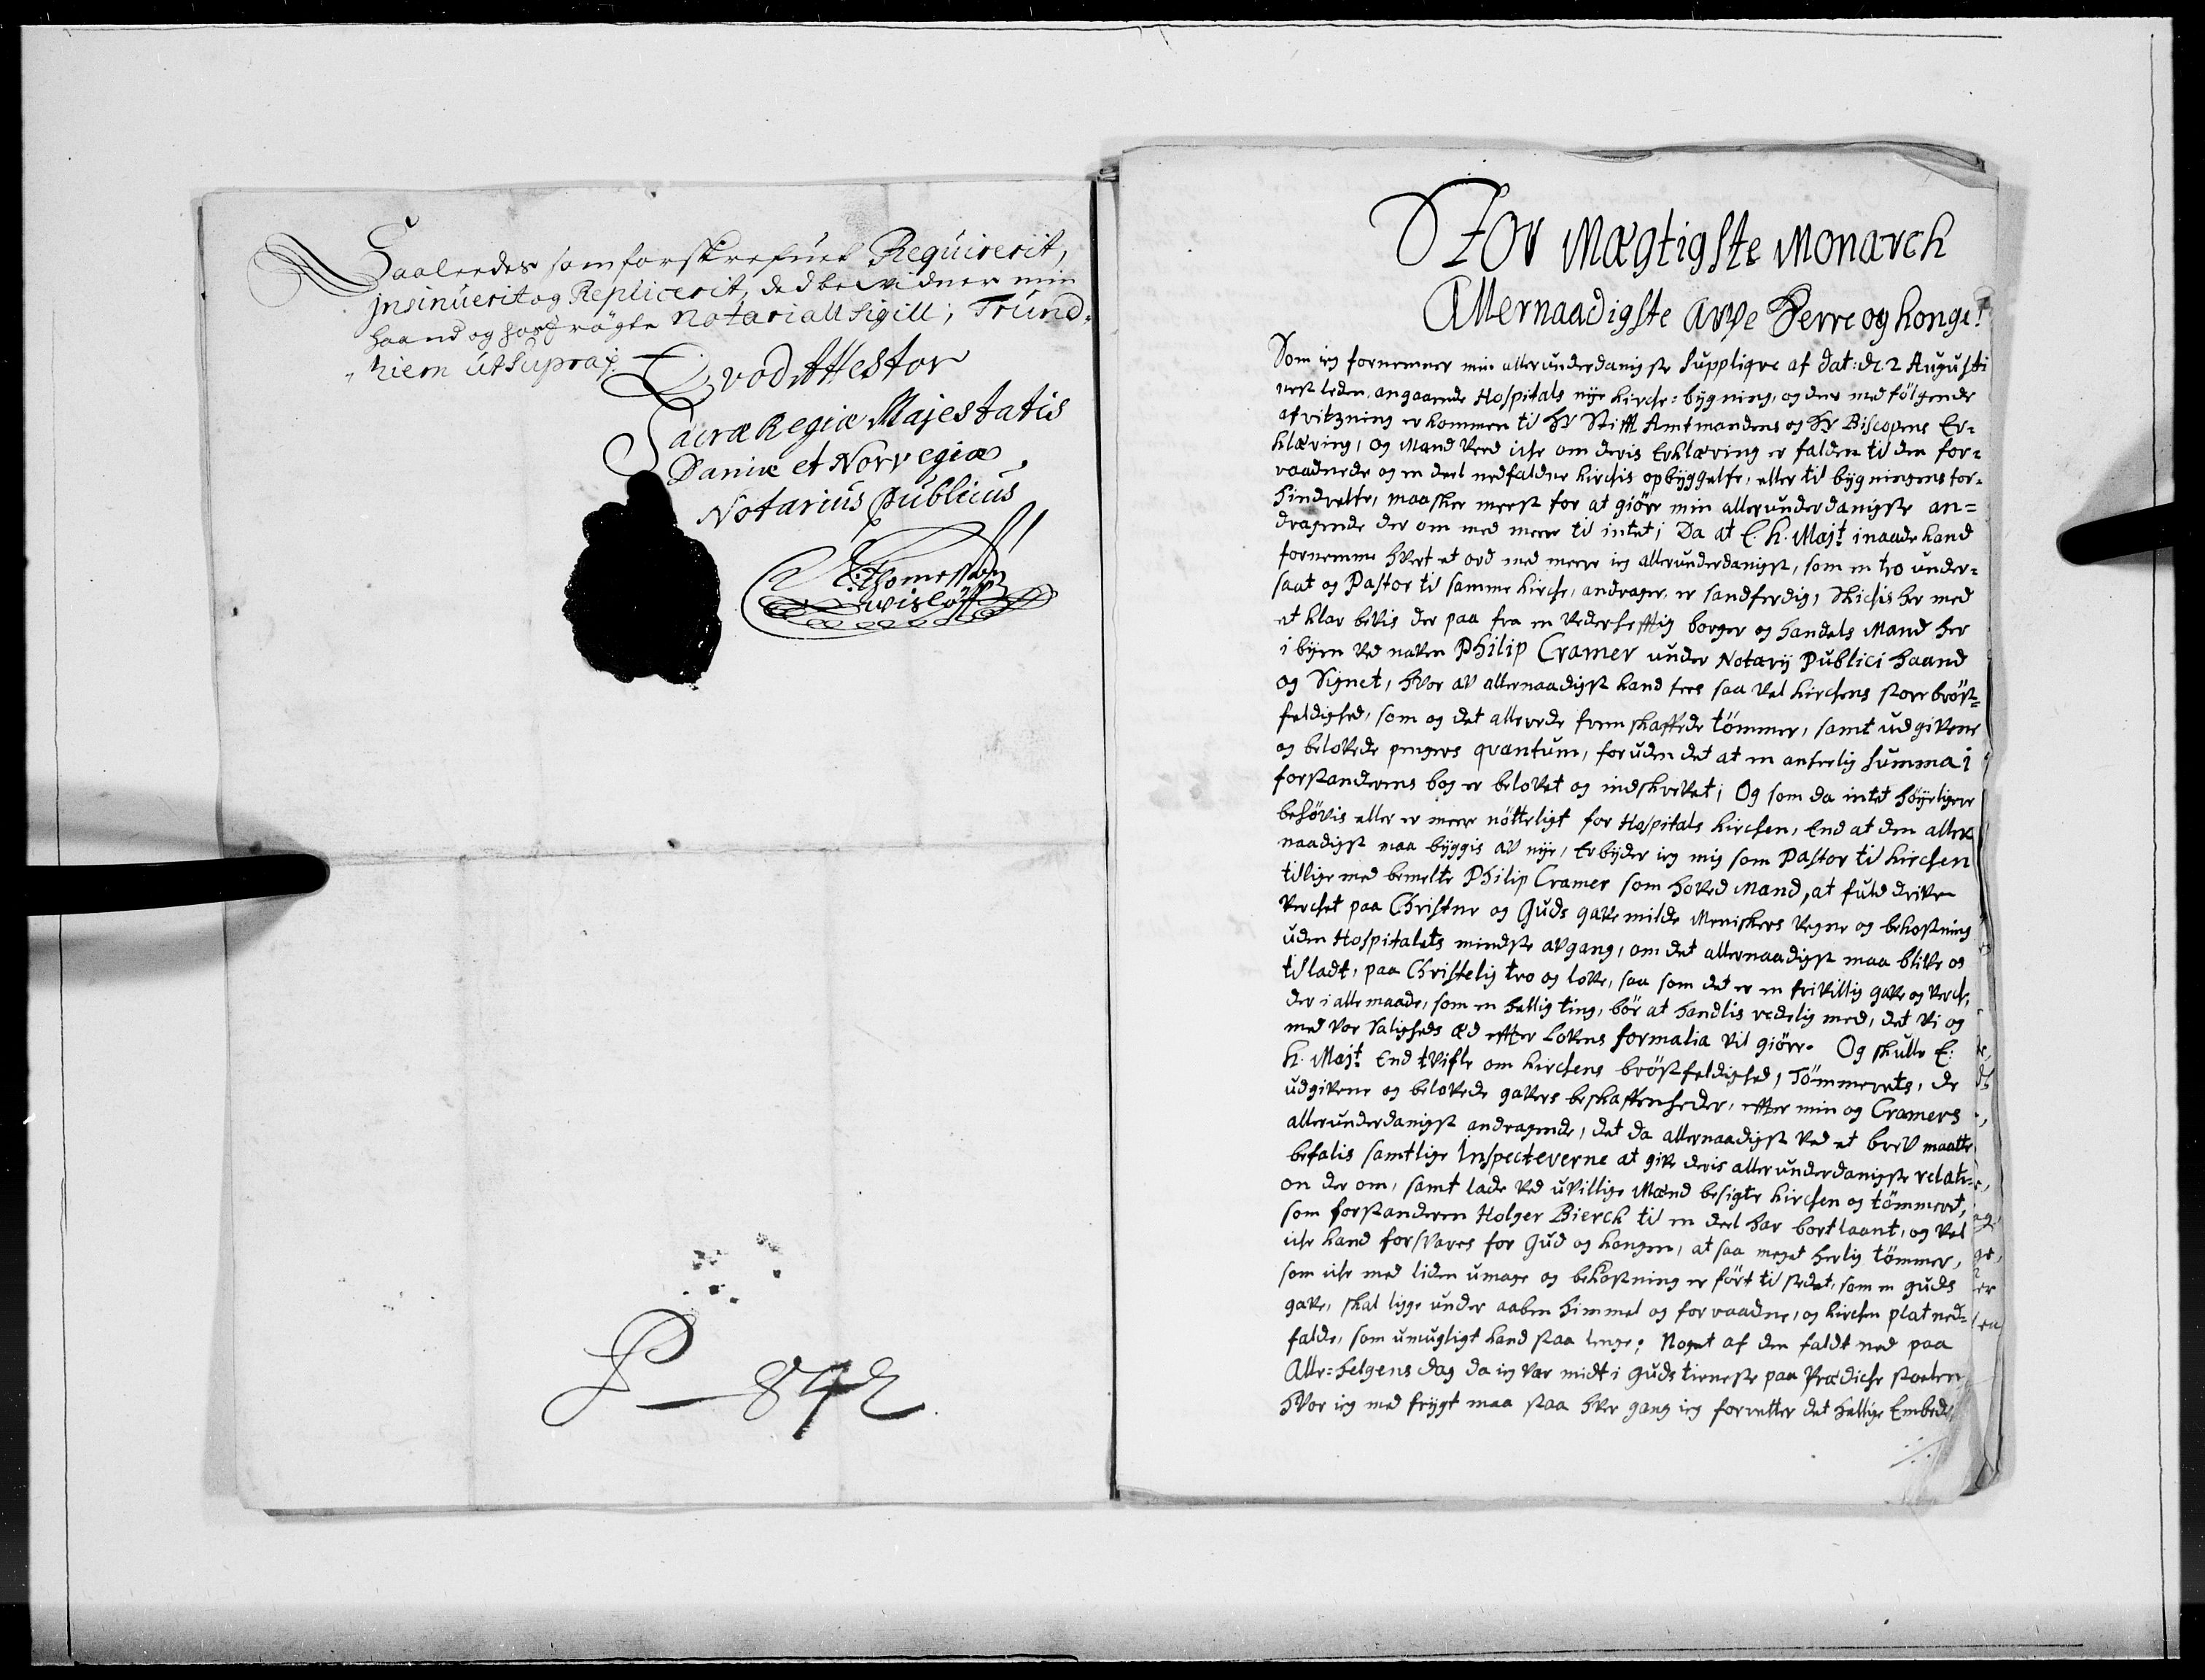 Saaleedes som forskrefuet Reqvirerit,
jnsinuerit og Replicerit, ded bevidner min
haand og hoströgte Notariall Sigill; Trund-
hiem ut Supra/.
Qvod Attestor
Sacræ Regiæ Majestatis
Daniæ et Norvegiæ
Notarius Publicus
Thomessøn
Wislöff
P 842
Stor Mægtigste Monarch
Allernaadigste Arve Herre og konge!
Som ieg fornemmer min allerunderdanigste Supplique af dat: d: 2 Augusti
nest leden, angaaende Hospitals nye kirche-bygning, og dens medfölgende
afvitzning er kommen til Hr Stifft Amtmandens og Hr Biscopens Er-
klæring, og Mand veed iche om deris Erklæring er falden til den for-
raadnede og en deel nedfaldne kirchis opbyggelse, eller til bygningens for-
hindrelse, maaskee meest for at giöre min allerunderdanigste an-
dragende der om med meere til intet; Da at E. k. Majt. i naade kand
fornemme hvert et ord med meere ieg allerunderdanigst, som en tro under-
saat og Pastor til samme kirche, andrager, er sandferdig, Skichis her med
et klar bevis der paa fra en vederhefftig borger og handels Mand her
i byen ved naven Philip Cramer under Notarij Publici haand
og Signet, hvor av allernaadigst kand sees saa vel kirchens store bröst-
feldighed, som og det allerede fremskaffede tömmer, samt udgivene
og belovede pengers qvantum, foruden det at en anseelig summa i
forstanderens bog er belovet og indskrevet; Og som da intet höyeligere
behövis eller er meere nötteligt for Hospitals kirchen, End at den aller
naadigst maa byggis av nye, Erbyder ieg mig som Pastor til kirchen
tillige med bemelte Philip Cramer som hoved Mand, at fulddrive
verchet paa Christne og Guds gavemilde Meniskers vegne og bekostning
uden Hospitalets mindste avgang, om det allernaadigst maa blive os
tilladt, paa Christelig tro og love, saa som det er en frivillig gave og verch,
der i alle maade, som en hellig ting, bör at handlis redelig med, det vi og
med vor Saligheds æd effter Lovens formalia vil giöre. Og skulle E:
k. Majt. End tvifle om kirchens bröstfeldighed, Tömmerets, de
udgivene og belovede gavers beskaffenheder, effter min og Cramers
allerunderdanigst andragende, det da allernaadigst ved et brev maatte
befalis samtlige Inspecteverne at give deris allerunderdanigste relati-
on der om, samt lade ved uvillige Mænd besigte kirchen og tömmeret,
som forstanderen Holger Bierch til en deel har bortlaant, og vel
iche kand forsvares for Gud og kongen, at saa meget herlig tömmer,
som iche med liden umage og bekostning er fört til stedet, som en guds
gave, skal ligge under aaben himmel og forraadne, og kirchen plat ned-
falde, som umugligt kand staa lenge; Noget af den faldt ned paa
Alle-helgens dag da ieg var midt i Guds tieneste paa Prædiche stoelen
hvor ieg med frygt maa staa hver gang ieg forretter det hellige Embede,